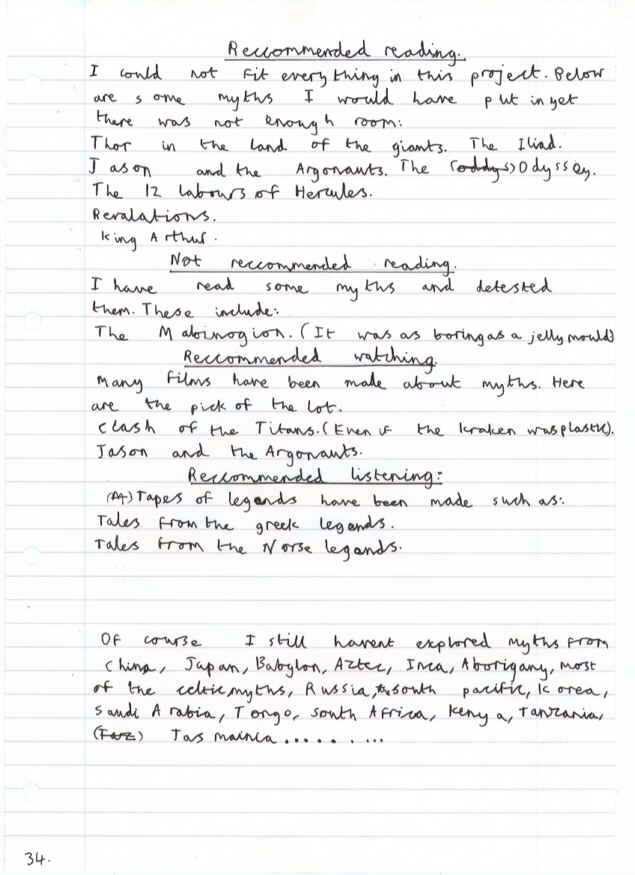 Reccommended reading.
I could not fit everything in this project. Below
are some myths I would have put in yet
there was not enough room:
Thor in the land of the giants. The Iliad.
Jason and the Argonauts. The (oddys) Odyssey.
The 12 labours of Hercules.
Revalations.
King Arthur.
Not reccommended reading.
I have read some myths and detested
them. These include:
The Mabinogion. (It was as boring as a jelly mould)
Reccommended watching.
Many films have been made about myths. Here
are the pick of the lot.
Clash of the Titans. (Even if the kraken was plastic).
Jason and the Argonauts.
Reccommended listening:
Tapes of legends have been made such as:
Tales from the greek legends.
Tales from the Norse legends.
Of course I still havent explored myths from
China, Japan, Babylon, Aztec, Inca, Aborigany, most
of the celtic myths, Russia, south pacific, Korea,
Saudi Arabia, Tongo, South Africa, Kenya, Tanzania,
Tasmainia.........
34.